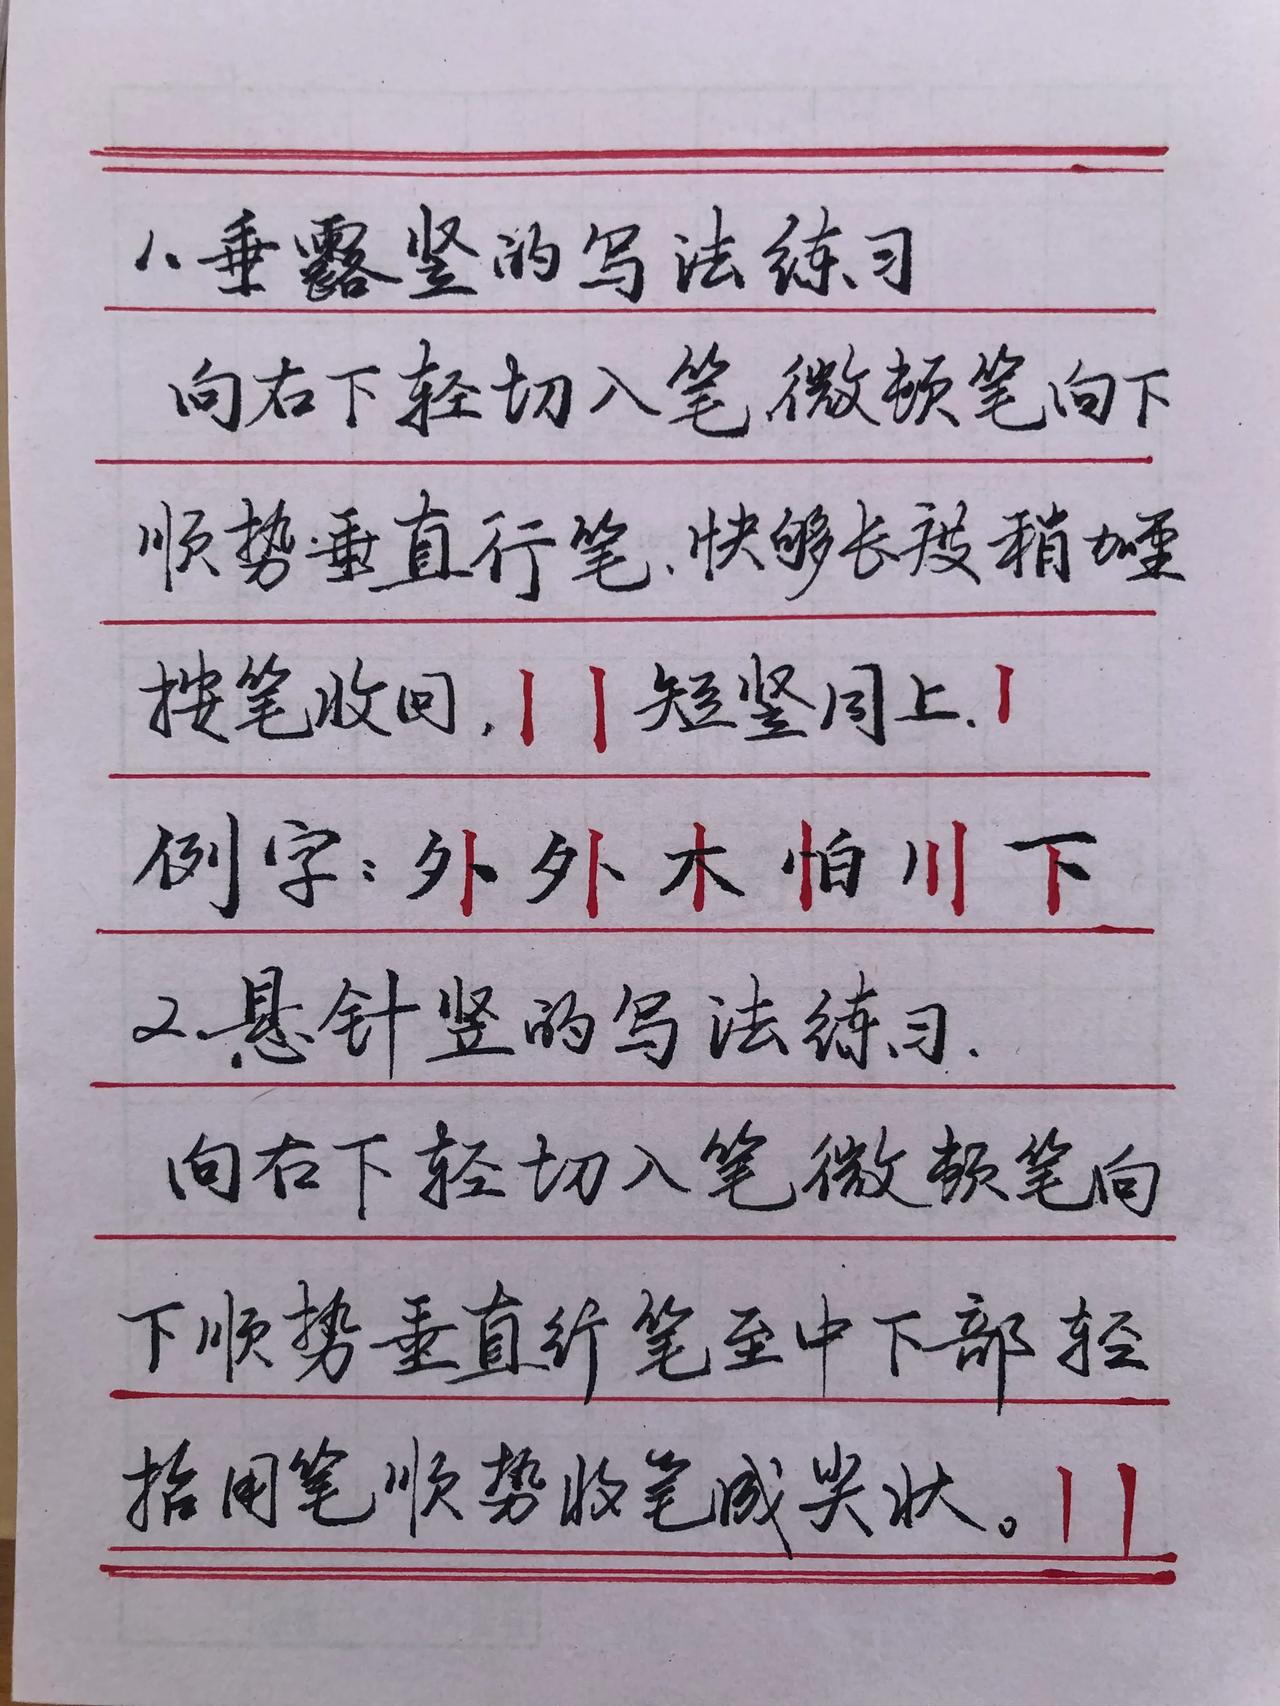 1、垂露竖的写法练习
向右下轻切入笔、微顿笔向下
顺势垂直行笔、快够长度稍加重
按笔收回，短竖同上、
例字：外外木怕川下
2、悬针竖的写法练习.
向右下轻切入笔微顿笔向
下顺势垂直行笔至中下部轻
抬用笔顺势收笔成尖状。